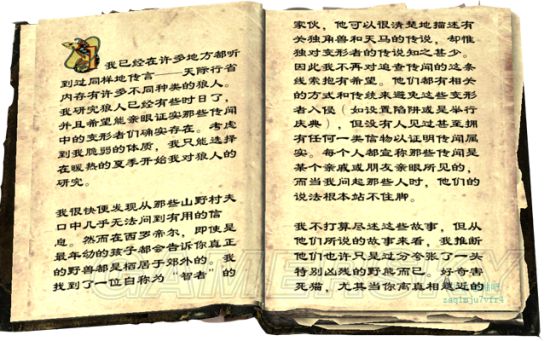 我已经在许多地方都听
到过同样地传言——天际行省
内存有许多不同种类的狼人。
我研究狼人已经有些时日了，
并且希望能亲眼证实那些传闻
中的变形者们确实存在。考虑
到我脆弱的体质，我只能选择
在暖热的夏季开始我对狼人的
研究。
我很快便发现从那些山野村夫
口中几乎无法问到有用的信
息。然而在西罗帝尔，即使是
最年幼的孩子都会告诉你真正
的野兽都是栖居于郊外的。我
找到了一位自称为“智者”的
家伙，他可以很清楚地描述有
关独角兽和天马的传说，却惟
独对变形者的传说知之甚少。
因此我不再对追查传闻的这条
线索抱有希望。他们都有相关
的方式和传统来避免这些变形
者入侵（如设置陷阱或是举行
庆典），但没有人见过甚至拥
有任何一类信物以证明传闻属
实。每个人都宣称那些传闻是
某个亲戚或朋友亲眼所见的，
而当我问起那些人时，他们的
说法根本站不住脚。
我不打算尽述这些故事，但从
他们所说的故事来看，我推断
他们也许只是过分夸张了一头
特别凶残的野熊而已，好奇害
死猫，尤其当你离真相越近的
GAMERSKY
zaqimju7vfr4